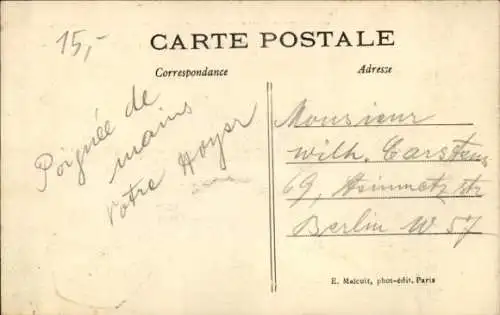 15,-
CARTE POSTALE
Correspondance
Adresse
Poignée de
mains
votre Hoyer
Monsieur
Wilh. Carstens
69, Steinmetz str
Berlin W. 57
E. Malcuit, phot-édit, Paris